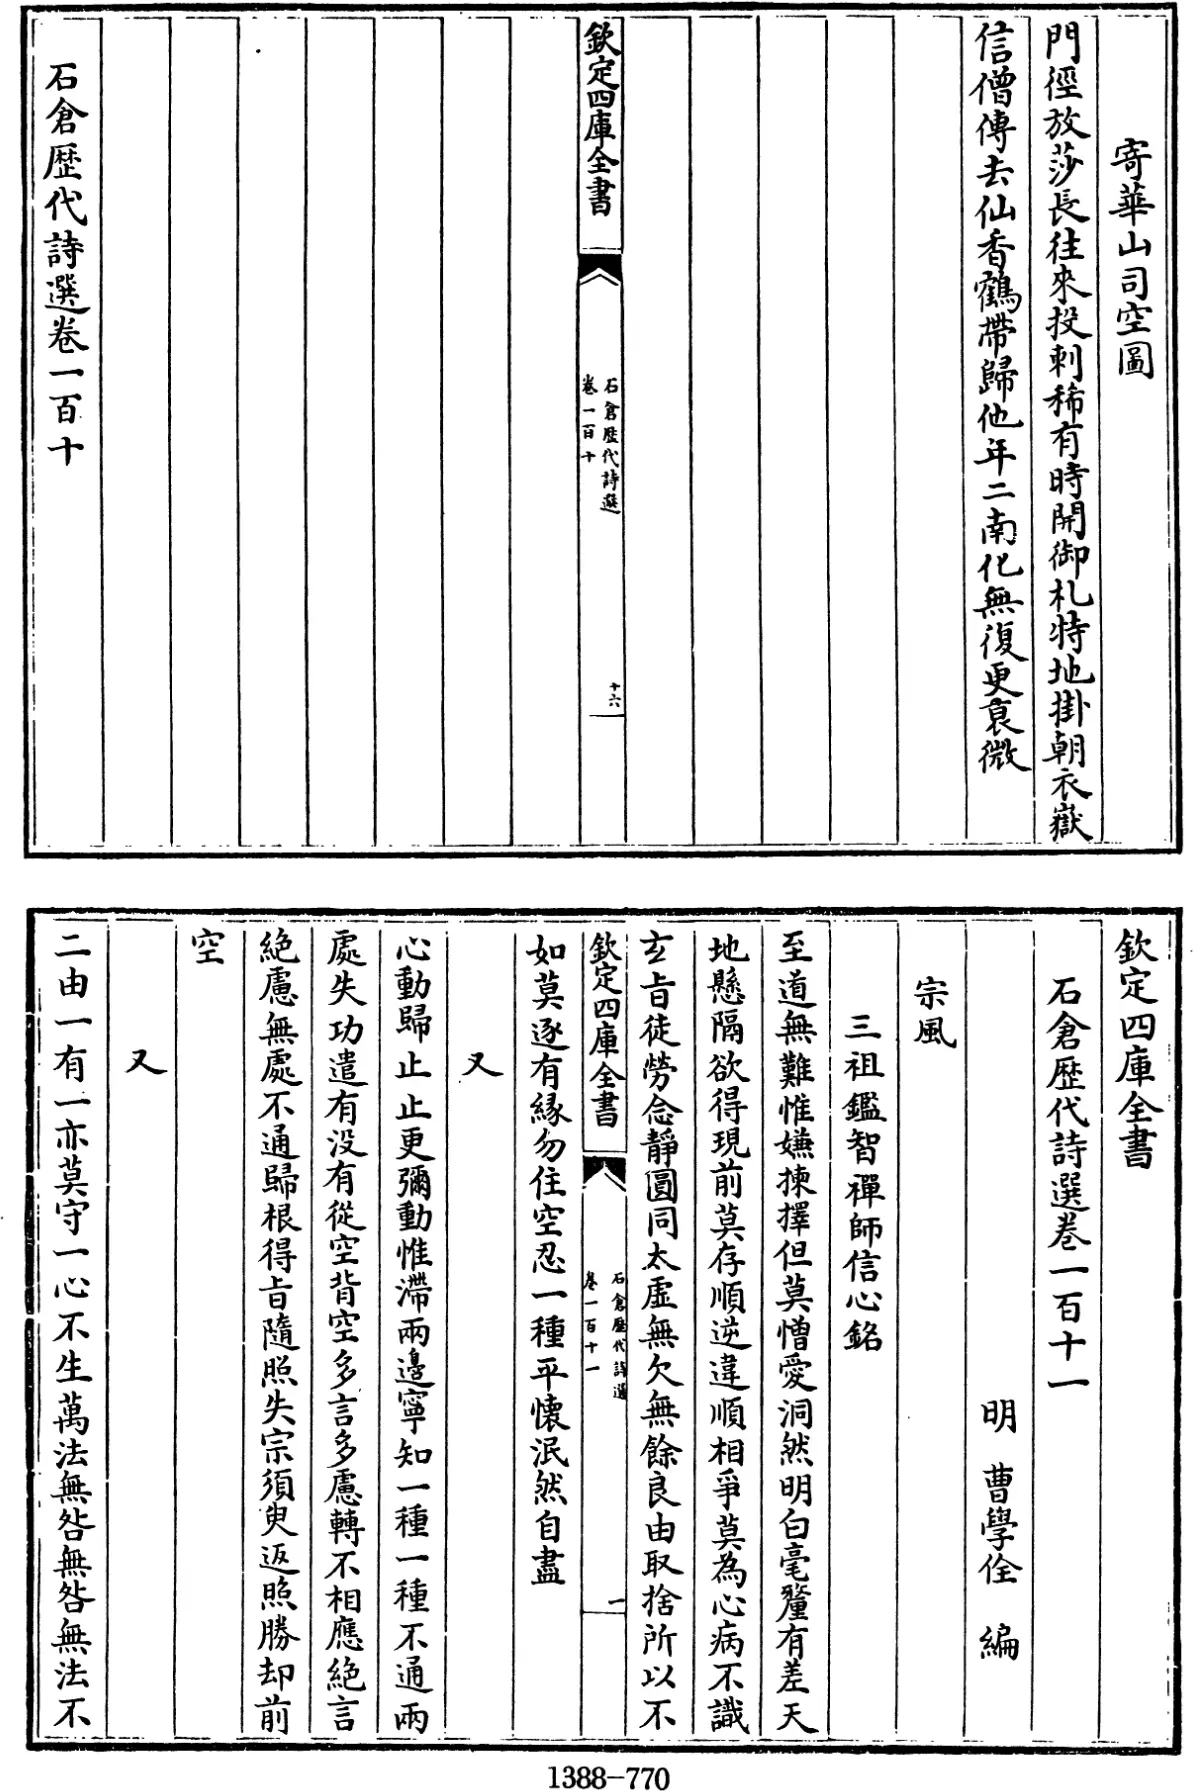 寄華山司空圖
門徑放莎長往來投刺稀有時開御札特地掛朝衣嶽
信僧傳去仙香鶴帶歸他年二南化無復更衰微
欽定四庫全書
石倉歷代詩選
卷一百十
十六
石倉歷代詩選卷一百十
欽定四庫全書
石倉歷代詩選卷一百十一
明 曹學佺 編
宗風
三祖鑑智禪師信心銘
至道無難惟嫌揀擇但莫憎愛洞然明白毫釐有差天
地懸隔欲得現前莫存順逆違順相爭莫為心病不識
玄旨徒勞念靜圓同太虛無欠無餘良由取捨所以不
欽定四庫全書
石倉歷代詩選
卷一百十一
一
如莫逐有緣勿住空忍一種平懷泯然自盡
又
心動歸止止更彌動惟滯兩邊寧知一種一種不通兩
處失功遣有没有從空背空多言多慮轉不相應絕言
絕慮無處不通歸根得旨隨照失宗須臾返照勝却前
空
又
二由一有一亦莫守一心不生萬法無咎無咎無法不
1388-770